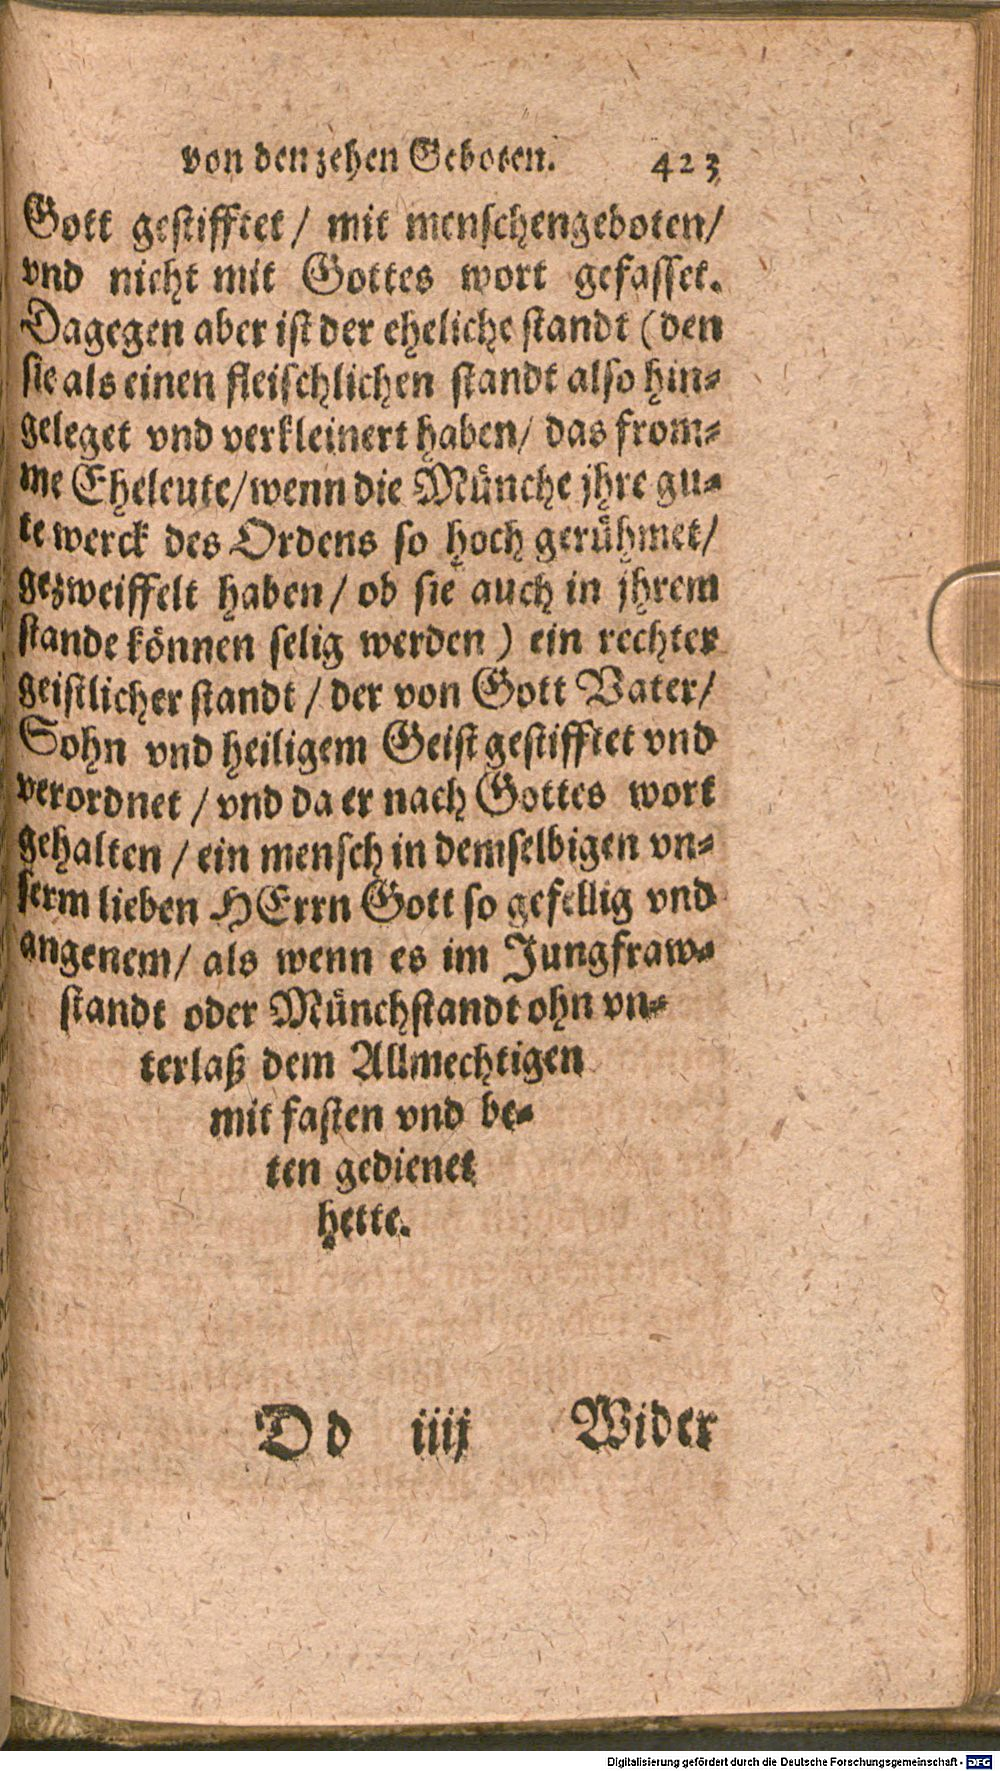 von den zehen Geboten. 423
Gott gestifftet / mit menschengeboten /
vnd nicht mit Gottes wort gefasset.
Dagegen aber ist der eheliche standt (den
sie als einen fleischlichen standt also hin⸗
geleget vnd verkleinert haben / das from⸗
me Eheleute / wenn die Münche jhre gu⸗
te werck des Ordens so hoch gerühmet /
gezweiffelt haben / ob sie auch in jhrem
stande können selig werden ) ein rechter
geistlicher standt / der von Gott Vater /
Sohn vnd heiligem Geist gestifftet vnd
verordnet / vnd da er nach Gottes wort
gehalten / ein mensch in demselbigen vn⸗
serm lieben HErrn Gott so gefellig vnd
angenem / als wenn es im Jungfraw⸗
standt oder Münchstandt ohn vn⸗
terlaß dem Allmechtigen
mit fasten vnd be⸗
ten gedienet
hette.
Dd iiij Wider
Digitalisierung gefördert durch die Deutsche Forschungsgemeinschaft - DFG